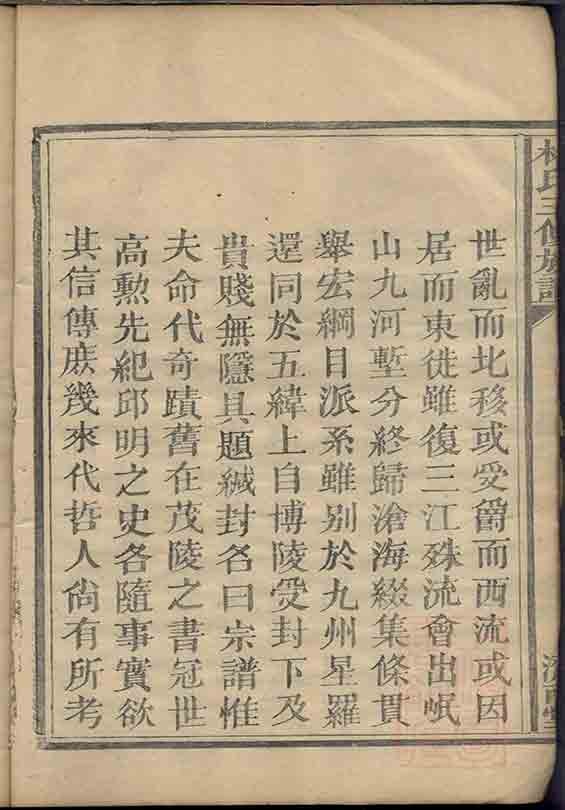 林氏三修族譜
世亂而北移或受爵而西流或因
居而東徙雖復三江殊流會出岷
山九河塹分終歸滄海綴集條貫
舉宏綱目派系雖别於九州星羅
還同於五緯上自博陵受封下及
貴賤無隱具題緘封名曰宗譜惟
夫命代奇蹟舊在茂陵之書冠世
高勲先紀邱明之史各隨事實欲
其信傳庶幾來代哲人尙有所考